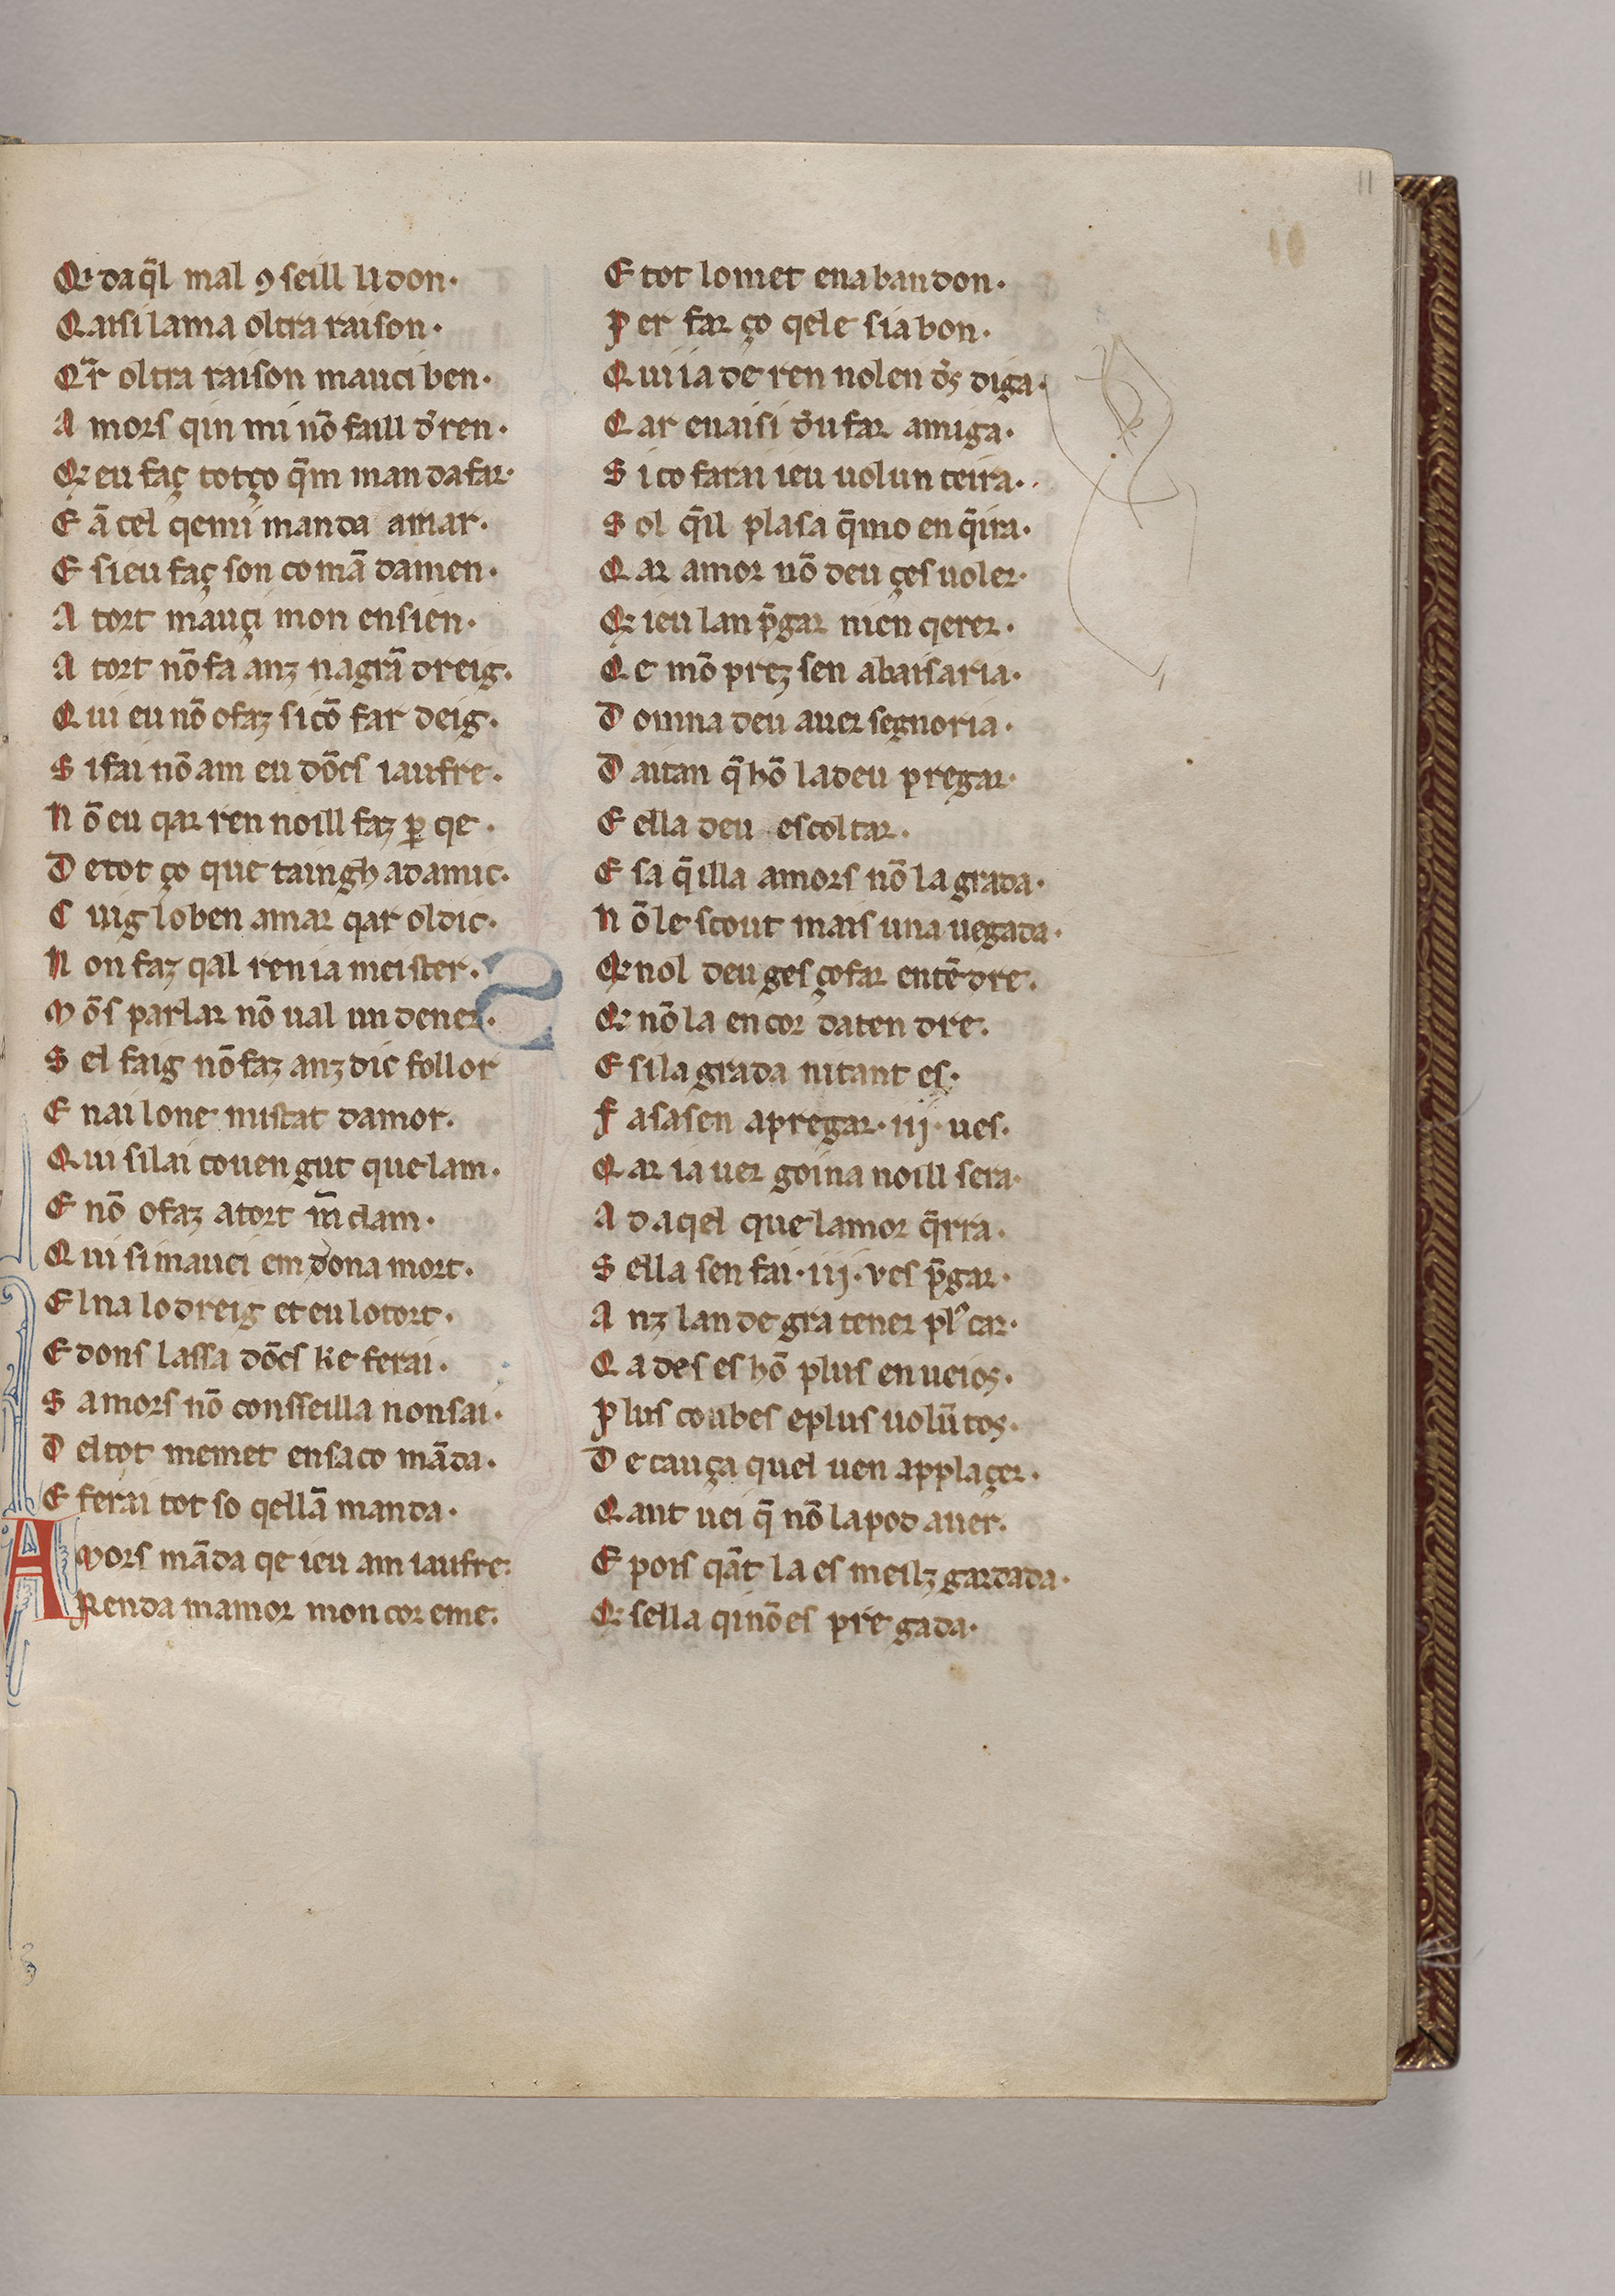 11
10
Qꝛ daq̃l mal ꝯseill li don·
Qaisi lama oltra raison·
Qr̃ oltra raison mauci ben·
Amors qin mi nõ faill d̃ren·
Qꝛ eu faç tot ço q̃m manda far·
E ã cel qemi manda amar·
E sieu faç son comãdamen·
A tort mauçi mon ensien·
A tort nõ fa anz nagrã dreig·
Qui eu nõ ofaz si cõ far deig·
Si fai nõ am eu dõcs iaufre·
Nõ eu qar ren noill faz ꝑ qe·
De tot ço que taingh adamic·
Cuig lo ben amar qar ol dic·
Non faz qal ren ia meister·
Mõs parlar nõ ual un dener·
Sel faig nõ faz anz dic follor
E nai lone mistat damor·
Qui silai couengut que lam·
E nõ ofaz a tort m̃ clam·
Qui si mauci em dona mort·
El na lo dreig et eu lo tort·
E dons lassa dõcs ke ferai·
S amors nõ consseilla non sai·
Del tot me met en sa co mãda·
E ferai tot so qellã manda·
Amors mãda qe ieu am iaufre·
Renda mamor mon cor e me·
E tot lo met en abandon·
Per far ço qele sia bon·
Qui ia de ren nolen d̃s diga·
Car enaisi d̃u far amiga·
Si co farai ieu uolunteira·
Sol q̃ll plasa q̃mo enq̃ira·
Qar amor nõ deu çes uoler·
Qꝛ ieu lan p̃gar nien qerer·
Qe mõ prez sen abaisaria·
Domna deu auer segnoria·
Daitan q̃ hõ la deu pregar·
E ella deu escoltar·
E sa q̃illa amors nõ lagrada·
Nõ lescout mais una uegada·
Qꝛ nol deu ges ço far entẽdre·
Qꝛ nõ la en cor datendre·
E si lagrada nitant es·
Fasa sen a pregar·iij·ues·
Qar ia uergoina noill sera·
Adaqel que lamor q̃rra·
Sella sen fai·iij·ves p̃gar·
Anz lan degra tener plꝰ car·
Cades es hõ plus enueios·
Plus coubes e plus uolũtos·
De cauça quel uen applaçer·
Qant uei q̃ nõ la pod auer·
E pois qãt la es meilz gardada·
Qꝛ sella qi nõ es pregada·